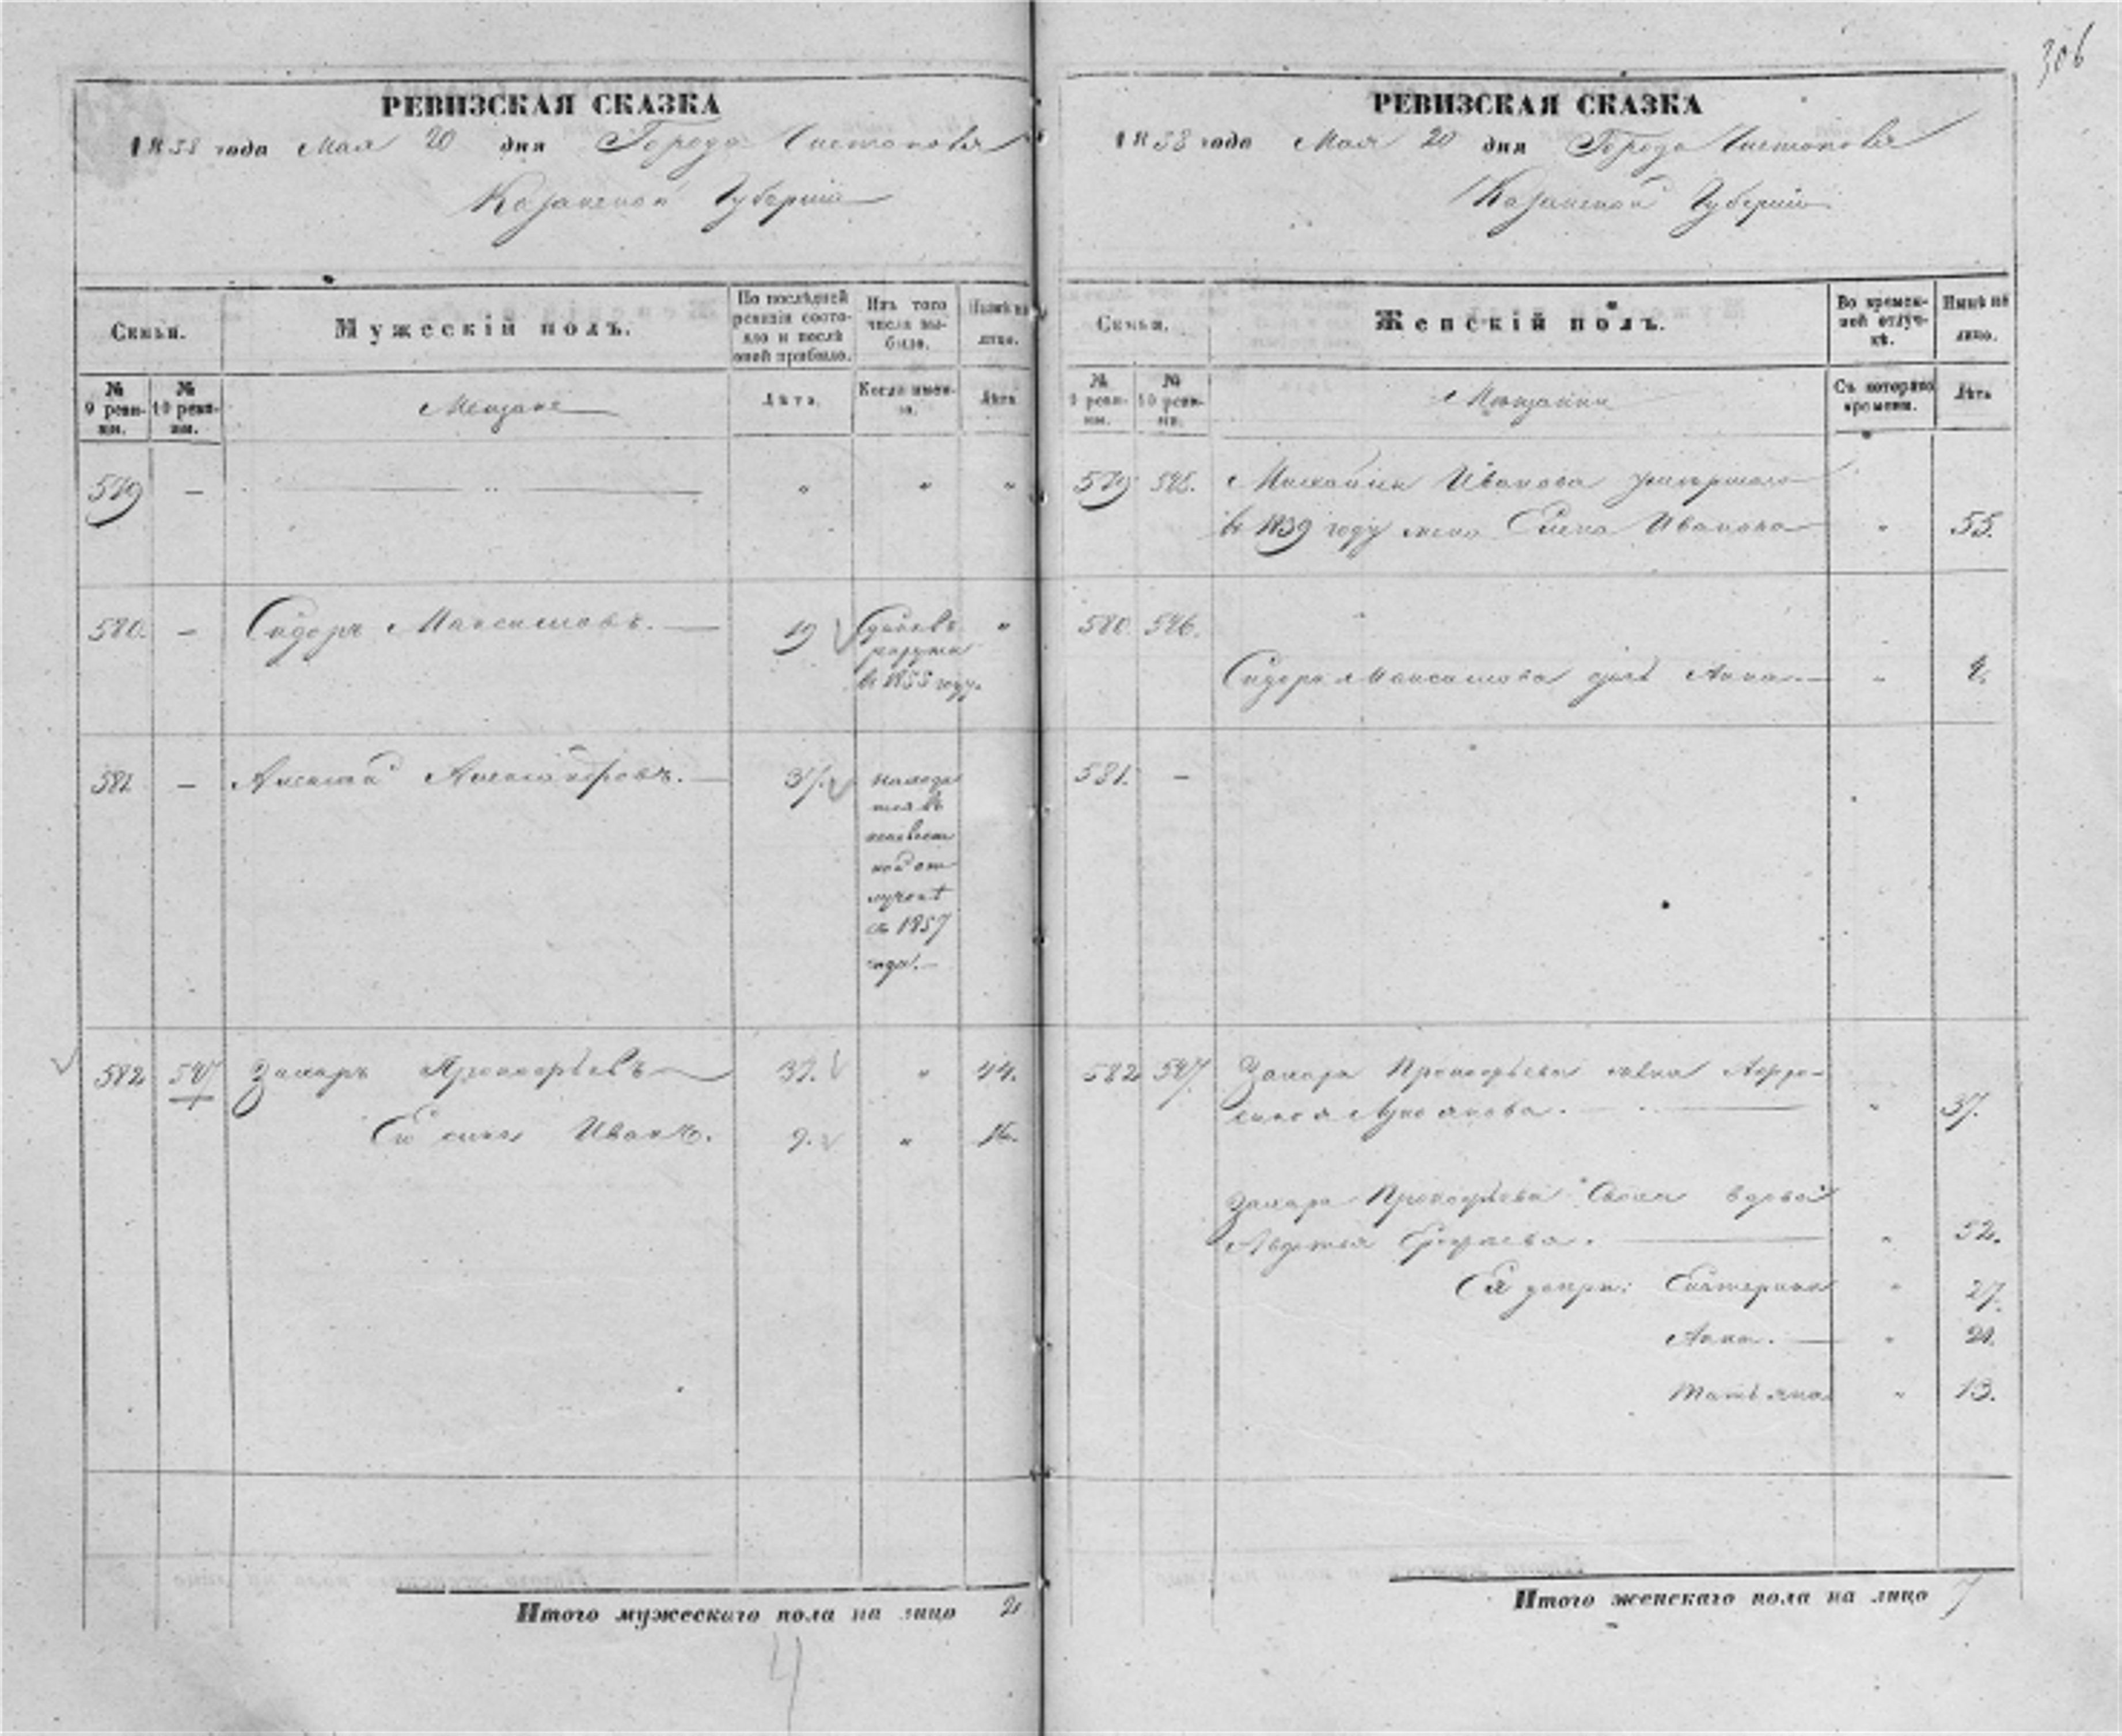 306
РЕВИЗСКАЯ СКАЗКА
1858 года Мая 20 дня Города Чистополя
Казанской Губернии
Семьи.
Мужескій полъ.
По послѣдней ревизіи состояло и послѣ оной прибыло.
Изъ того числа выбыло.
Нынѣ на лицо.
№ 9 ревизіи.
№ 10 ревизіи.
Мещане
Лѣта.
Когда именно.
Лѣта
579 — — „ — „ „ „
580. — Сидоръ Максимовъ. — 19 „
въ рекруты
въ 1855 году.
581 — Алексѣй Александровъ. — 37.
находи
тся въ
неизвест
ной от
лучкѣ
съ 1857
года. —
582 547 Захаръ Прокофьевъ 32. „ 44.
Его сынъ Иванъ. 9. „ 16.
Итого мужескаго пола на лицо 2
4
РЕВИЗСКАЯ СКАЗКА
1858 года Мая 20 дня Города Чистополя
Казанской Губерніи
Семьи.
Женскій полъ.
Во временной отлучкѣ.
Нынѣ на лицо.
№ 9 ревизіи.
№ 10 ревизіи.
Мѣщанки
Съ котораго времени.
Лѣта
579 545. Ивanova умершаго
въ 1839 году жена Елена Иванова „ 55.
580. 546.
Сидора Максимова дочь Анна. — „
581. —
582 547. Захара Прокофьева жена Афро-
синья Лукьянова. — „ 37.
Захара Прокофьева вдова
Авдотья „ 52.
Ея дочери: Екатерина „ 27.
Анна. — „
Татьяна „ 13.
Итого женскаго пола на лицо 7